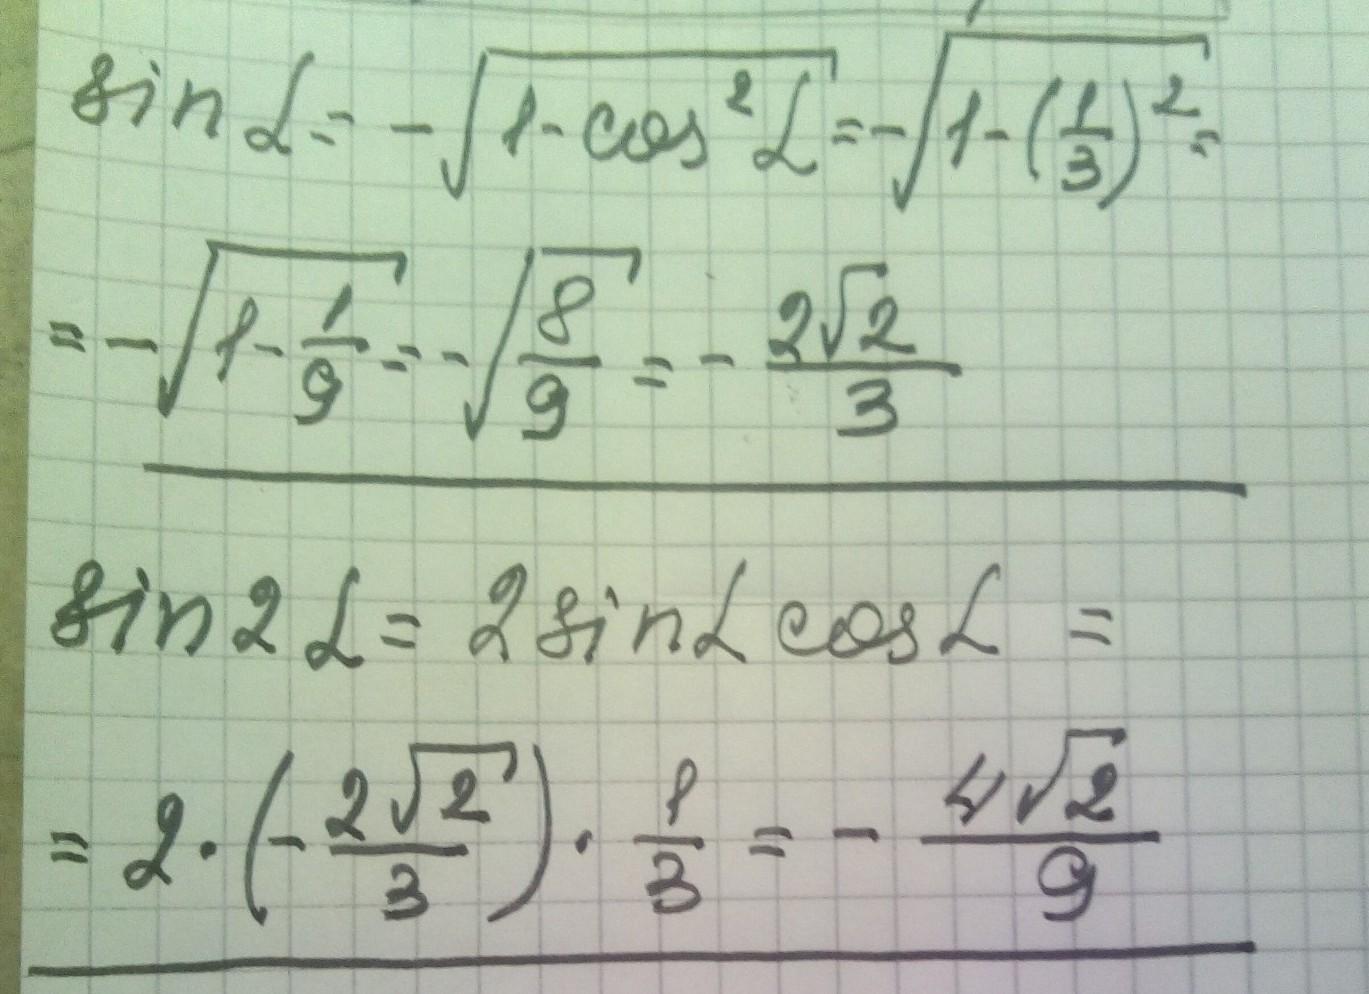 sin α = -√(1 - cos²α) = -√(1 - (1/3)²) =
= -√(1 - 1/9) = -√(8/9) = - 2√2/3
sin 2α = 2 sin α cos α =
= 2 · (- 2√2/3) · 1/3 = - 4√2/9